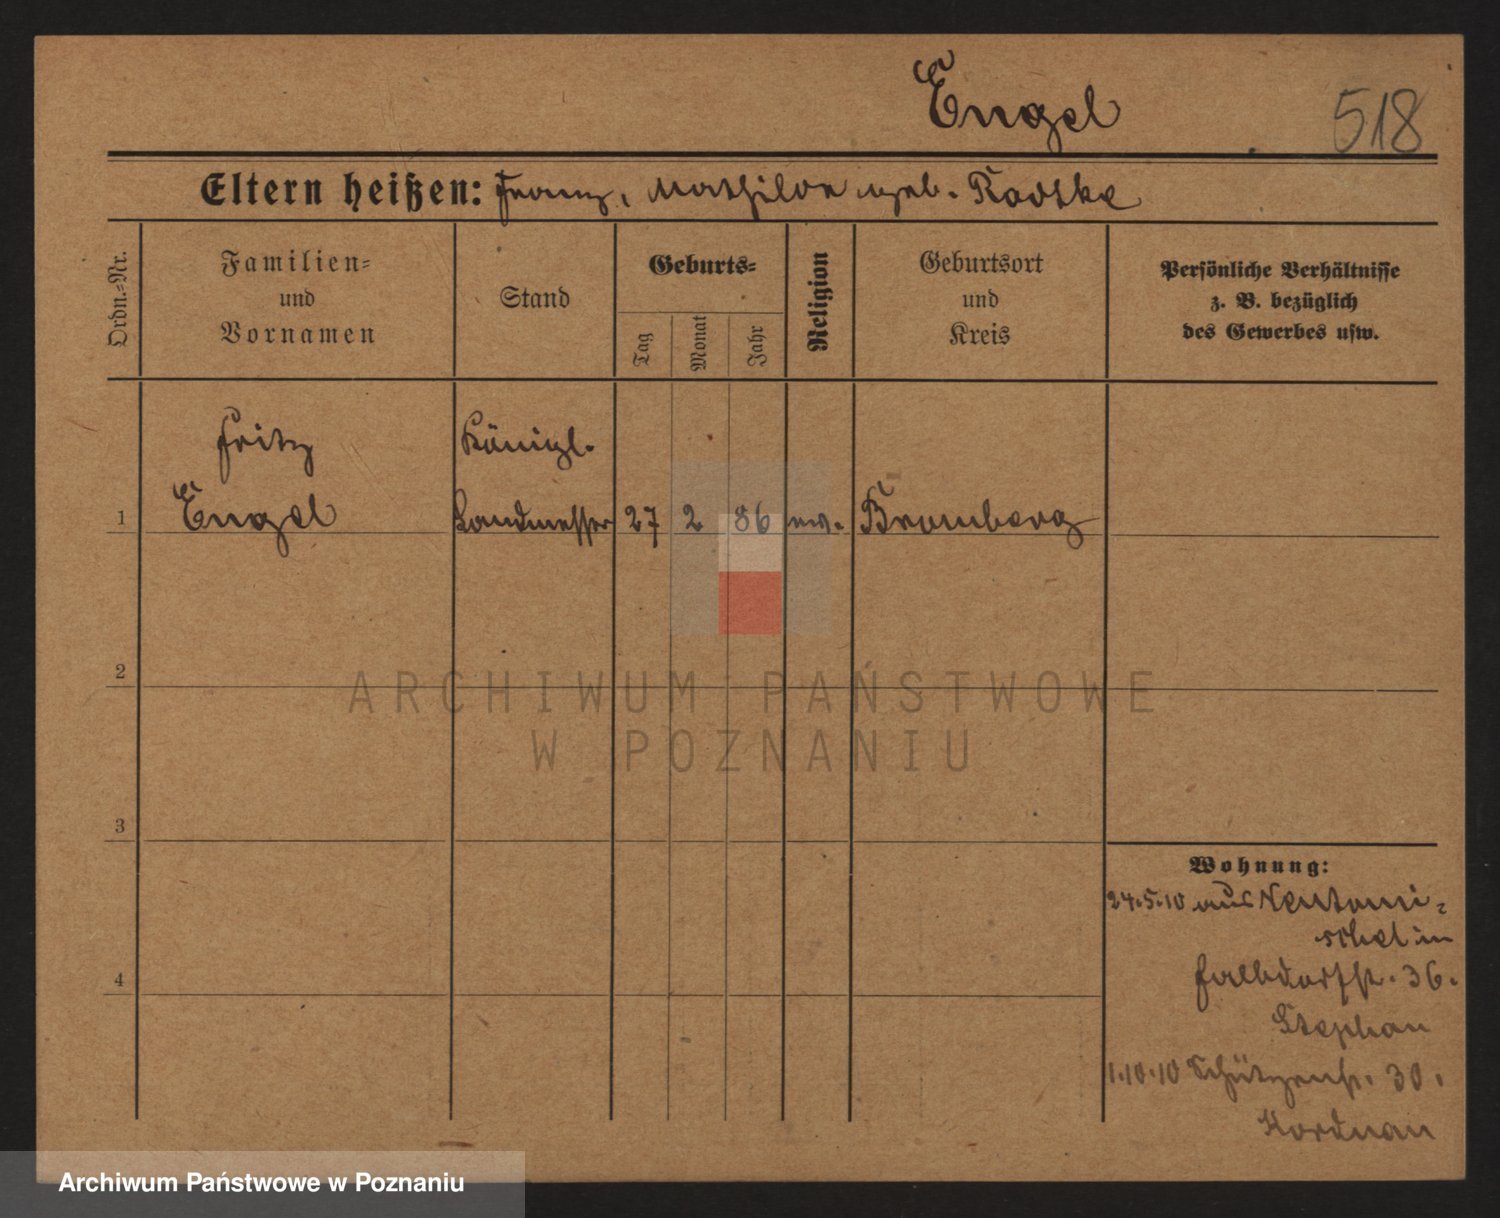 Engel
518
Eltern heißen: Franz, Mathilde geb. Radtke
Ordn.=Nr.
Familien=
und
Vornamen
Stand
Geburts=
Tag
Monat
Jahr
Religion
Geburtsort
und
Kreis
Persönliche Verhältnisse
z. B. bezüglich
des Gewerbes usw.
Fritz Königl.
1 Engel Landmesser 27 2 86 ev. Bromberg
2
ARCHIWUM PAŃSTWOWE
W POZNANIU
3
4
Wohnung:
24.5.10 aus Neutomi=
schel in
str. 36.
Stephan
1.10.10 Schützenstr. 30.
Archiwum Państwowe w Poznaniu